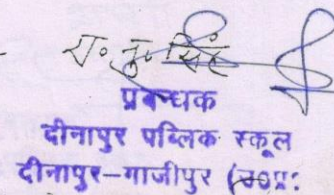 रा० नु० सिंह
प्रबन्धक
दीनापुर पब्लिक स्कूल
दीनापुर-गाजीपुर (उ०प्र: